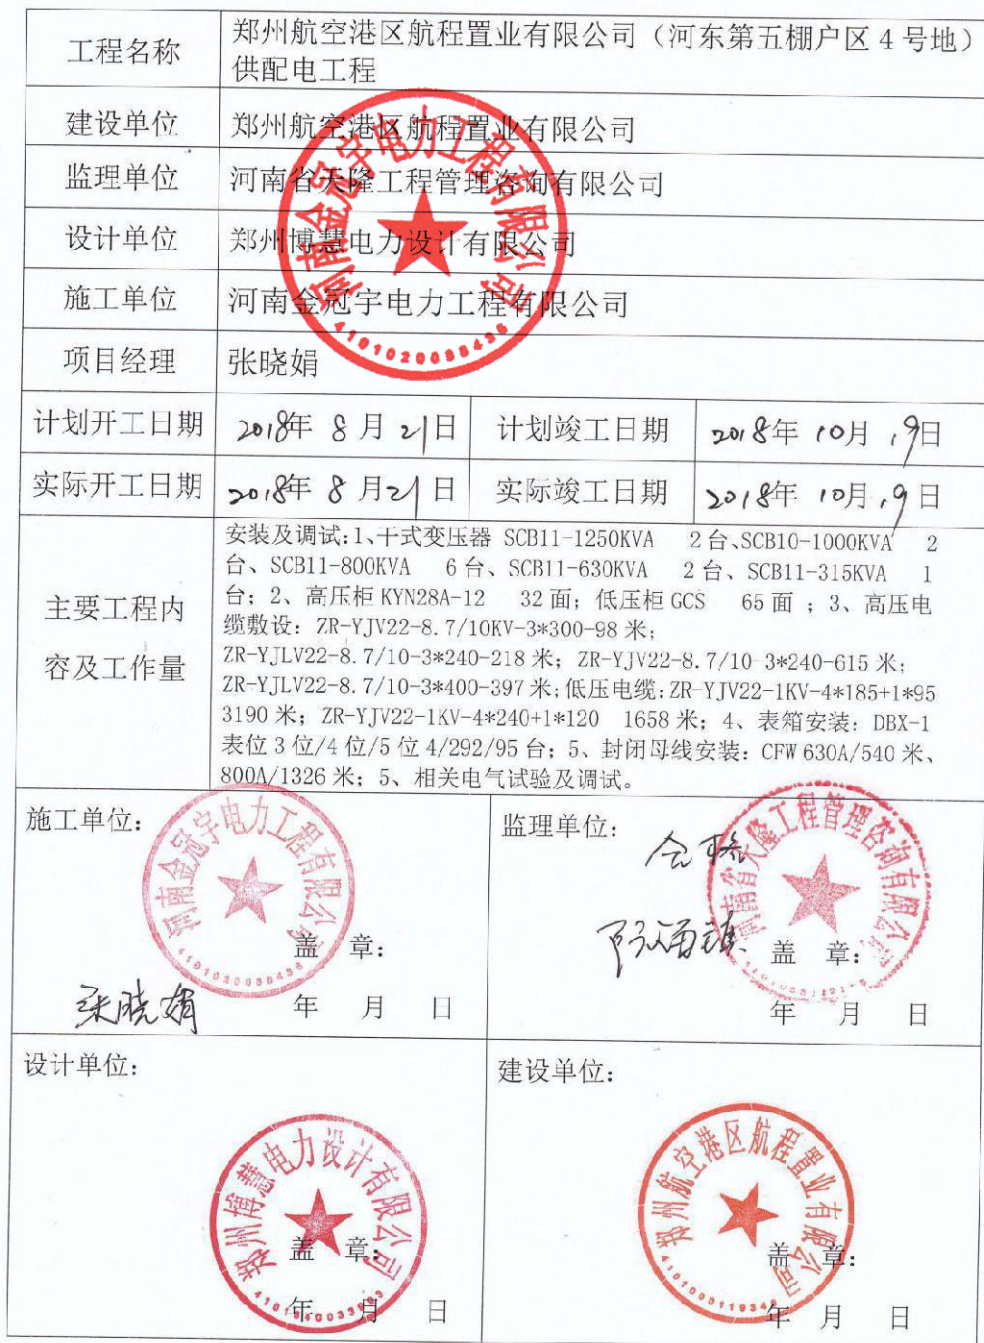 工程名称
郑州航空港区航程置业有限公司（河东第五棚户区 4 号地）
供配电工程
建设单位
郑州航空港区航程置业有限公司
监理单位
河南省天隆工程管理咨询有限公司
设计单位
郑州博慧电力设计有限公司
施工单位
河南金冠宇电力工程有限公司
河南金冠宇电力工程有限公司
项目经理
张晓娟
计划开工日期
2018年 8 月 21日
计划竣工日期
2018年 10月 19日
实际开工日期
2018年 8 月21 日
实际竣工日期
2018年 10月 19 日
主要工程内
容及工作量
安装及调试:1、干式变压器 SCB11-1250KVA 2台、SCB10-1000KVA 2
台、SCB11-800KVA 6台、SCB11-630KVA 2台、SCB11-315KVA 1
台；2、高压柜 KYN28A-12 32 面；低压柜 GCS 65 面 ；3、高压电
缆敷设：ZR-YJV22-8.7/10KV-3*300-98 米；
ZR-YJLV22-8.7/10-3*240-218 米；ZR-YJV22-8.7/10-3*240-615 米；
ZR-YJLV22-8.7/10-3*400-397 米；低压电缆：ZR-YJV22-1KV-4*185+1*95
3190 米；ZR-YJV22-1KV-4*240+1*120 1658 米；4、表箱安装：DBX-1
表位 3 位/4 位/5 位 4/292/95 台；5、封闭母线安装：CFW 630A/540 米、
800A/1326 米；5、相关电气试验及调试。
施工单位：
河南金冠宇电力工程有限公司
盖 章：
张晓娟
年 月 日
监理单位：
合格
河南省天隆工程管理咨询有限公司
盖 章：
年 月 日
设计单位：
郑州博慧电力设计有限公司
盖 章：
年 月 日
建设单位：
郑州航空港区航程置业有限公司
盖 章：
年 月 日